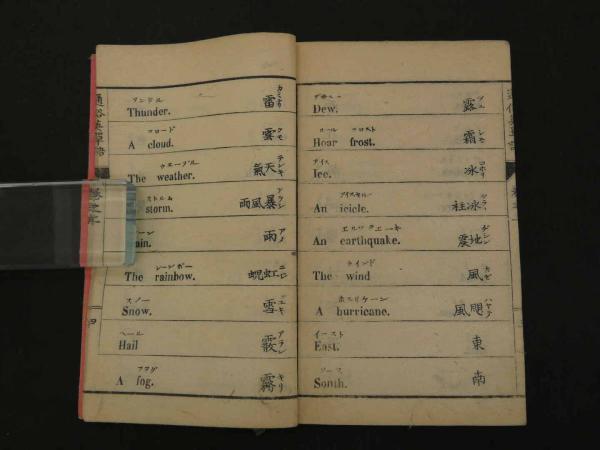 通俗英單語
サンドル
Thunder.
雷
カミナリ
クロード
A cloud.
雲
クモ
ウエーザル
The weather.
氣天
テンキ
ストルム
storm.
雨風暴
ーン
ain.
雨
アメ
レーンボー
The rainbow.
蜺虹
ニジ
スノー
Snow.
雪
ユキ
ヘール
Hail
アラレ
フヲグ
A fog.
霧
キリ
四
Dew.
露
ツユ
ホール フロスト
Hoar frost.
霜
シモ
アイス
Ice.
冰
コホリ
アイスキル
An icicle.
柱冰
ツラヽ
エルツクエーキ
An earthquake.
震地
ヂシン
ウインド
The wind
風
カゼ
ホルリケーン
A hurricane.
風颶
ハヤテ
イースト
East.
東
ソーフ
South.
南